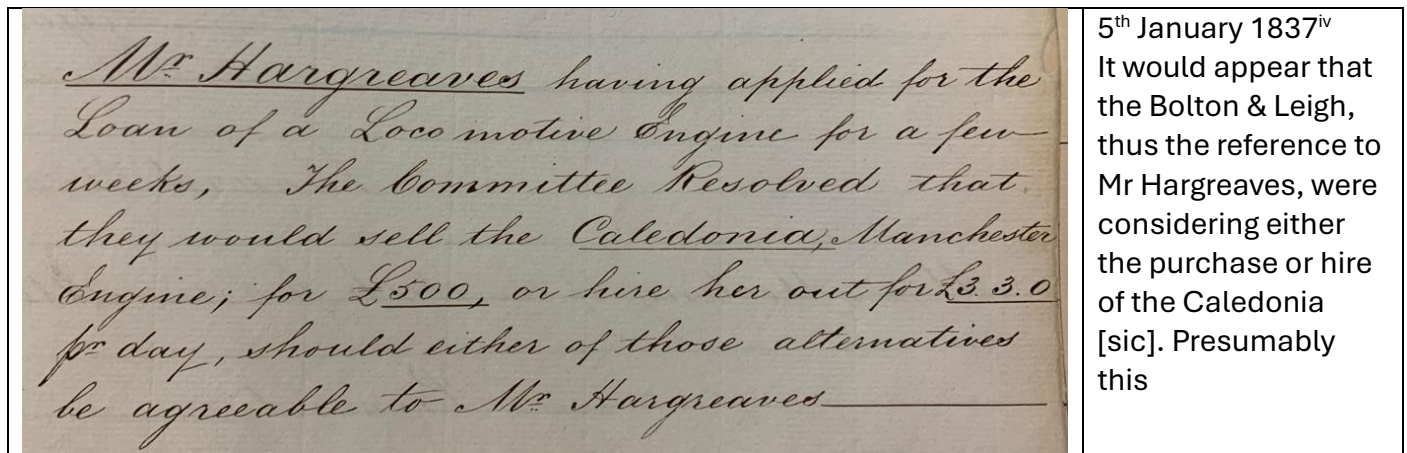 Mr Hargreaves having applied for the
Loan of a Loco motive Engine for a few
weeks, The Committee Resolved that
they would sell the Caledonia, Manchester
Engine; for £500, or hire her out for £3.3.0
pr day, should either of those alternatives
be agreeable to Mr Hargreaves
5th January 1837iv
It would appear that
the Bolton & Leigh,
thus the reference to
Mr Hargreaves, were
considering either
the purchase or hire
of the Caledonia
[sic]. Presumably
this